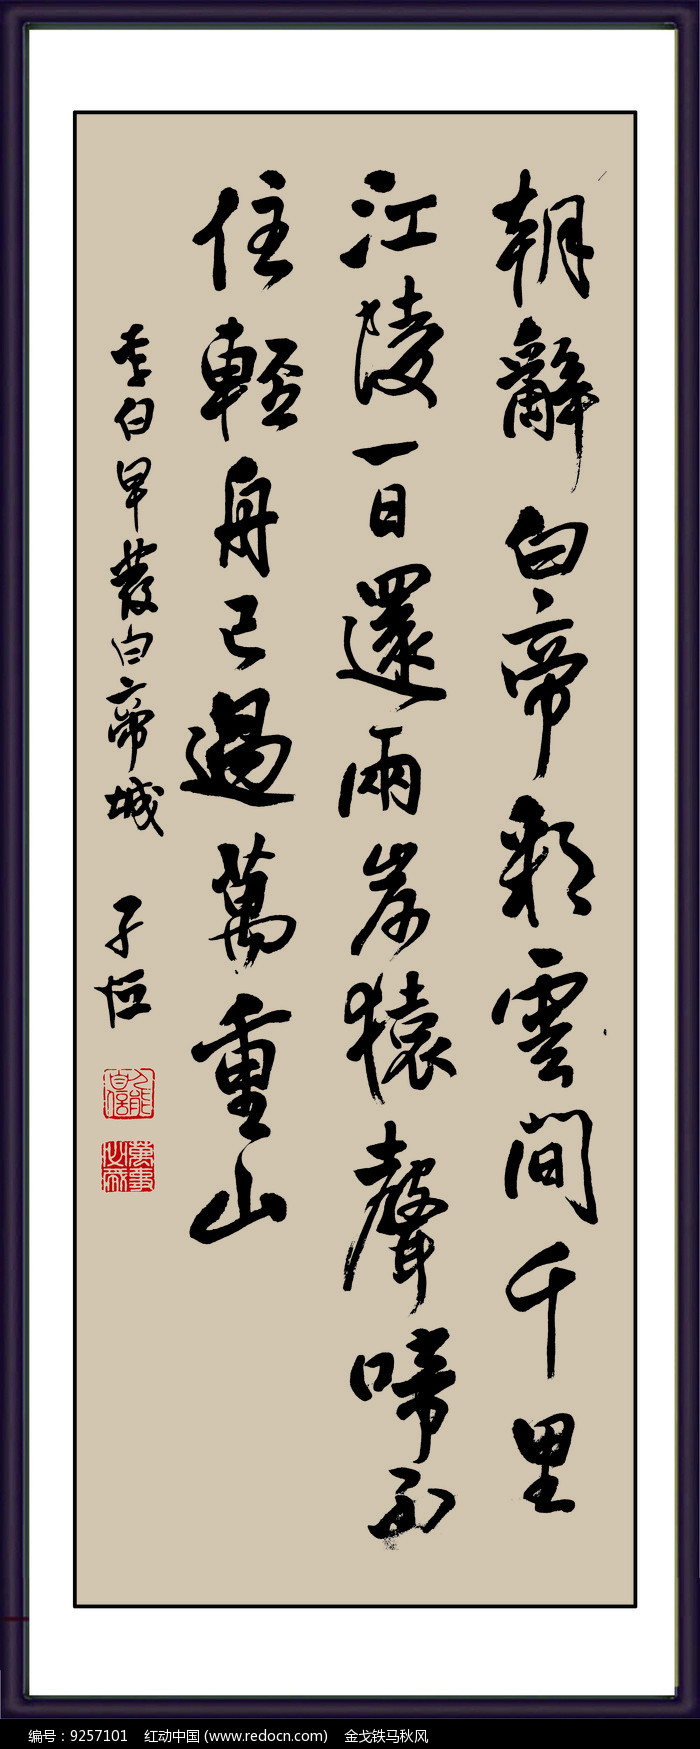 朝辭白帝彩雲間千里
江陵一日還兩岸猿聲啼不
住輕舟已過萬重山
李白早發白帝城 子恒
萬事
編号：9257101 红动中国 (www.redocn.com) 金戈铁马秋风